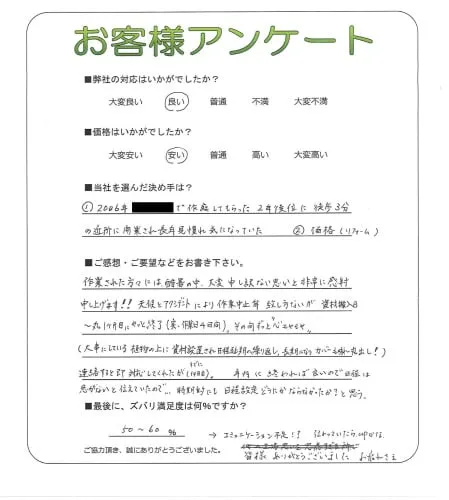 お客様アンケート
■弊社の対応はいかがでしたか?
大変良い 良い 普通 不満 大変不満
■価格はいかがでしたか?
大変安い 安い 普通 高い 大変高い
■当社を選んだ決め手は?
① 2006年 で作庭してもらった 2年後位に 徒歩3分
の近所に開業され長年見慣れ気になっていた ② 価格(リフォーム)
■ご感想・ご要望などをお書き下さい。
作業された方々には酷暑の中、大変申し訳ない思いと非常に感謝
申し上げます!! 天候とアクシデントにより作業中止等 致し方ないが 資材搬入日
〜丸1ヶ月目にやっと終了(実.作業日4日間)。その間ずっと
(大事にしている 植物の上に 資材放置され日程延期の繰り返し、長期になり カバーも 出し!)
連絡すると即対応してくれたが(14日目)。 年内に 終われば良いので日程は
急がないと伝えていたので... 時期的にも 日程設定どうにかならなかったか?と思う。
■最後に、ズバリ満足度は何%ですか?
50〜60 % → コミュニケーション不足!? 伝わっていたら
ご協力頂き、誠にありがとうございました。
皆様 ありがとうございました お疲れさま